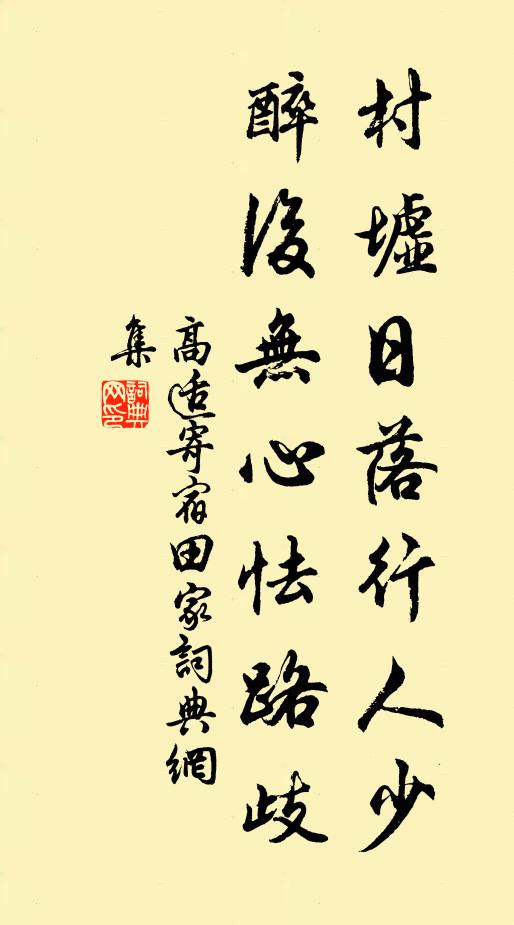 村墟日落行人少
醉後無心怯路歧
高适寄宿田家詞典網
集
詞典
網印